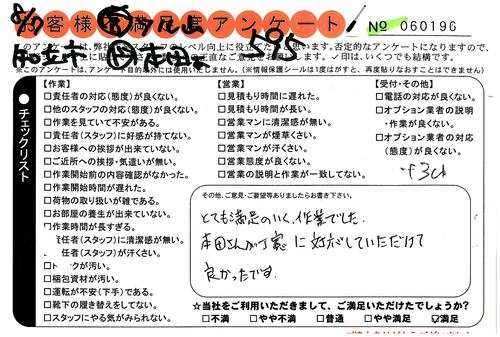 お客様満足度アンケート
№ 060196
595
※このアンケートは、アンケート目的以外には使用いたしません。(※情報保護シールは1度がすと、再度貼りなおすことはできません)
チェックリスト
【作業】
□責任者の対応(態度)が良くない。
□他のスタッフの対応(態度)が良くない。
□作業を見ていて不安がある。
□責任者(スタッフ)に好感が持てない。
□お客様への挨拶が出来ていない。
□ご近所への挨拶・気遣いが無い。
□作業開始前の内容確認がなかった。
□作業開始時間が遅れた。
□荷物の取り扱いが雑である。
□お部屋の養生が出来ていない。
作業時間が長すぎる。
責任者(スタッフ)に清潔感が無い。
責任者(スタッフ)が汗くさい。
が汚い。
□梱包資材が汚い。
□運転が不安(下手)である。
□靴下の履き替えをしてない。
□スタッフにやる気がみられない。
【営業】
□見積もり時間に遅れた。
□見積もり時間が長い。
□営業マンに清潔感が無い。
□営業マンが煙草くさい。
□営業マンが汗くさい。
□営業態度が良くない。
□営業の説明と作業が一致してない。
【受付・その他】
□電話の対応が良くない。
□オプション業者の説明
・作業が良くない。
□オプション業者の対応
(態度)が良くない。
その他、ご意見・ご要望等ありましたらお書き下さい。
とても満足のいく、作業でした。
本田さんが丁寧に対応していただけて
良かったです。
☆当社をご利用いただきまして、ご満足いただけたでしょうか?
□不満 □やや不満 □普通 □やや満足 ☑満足